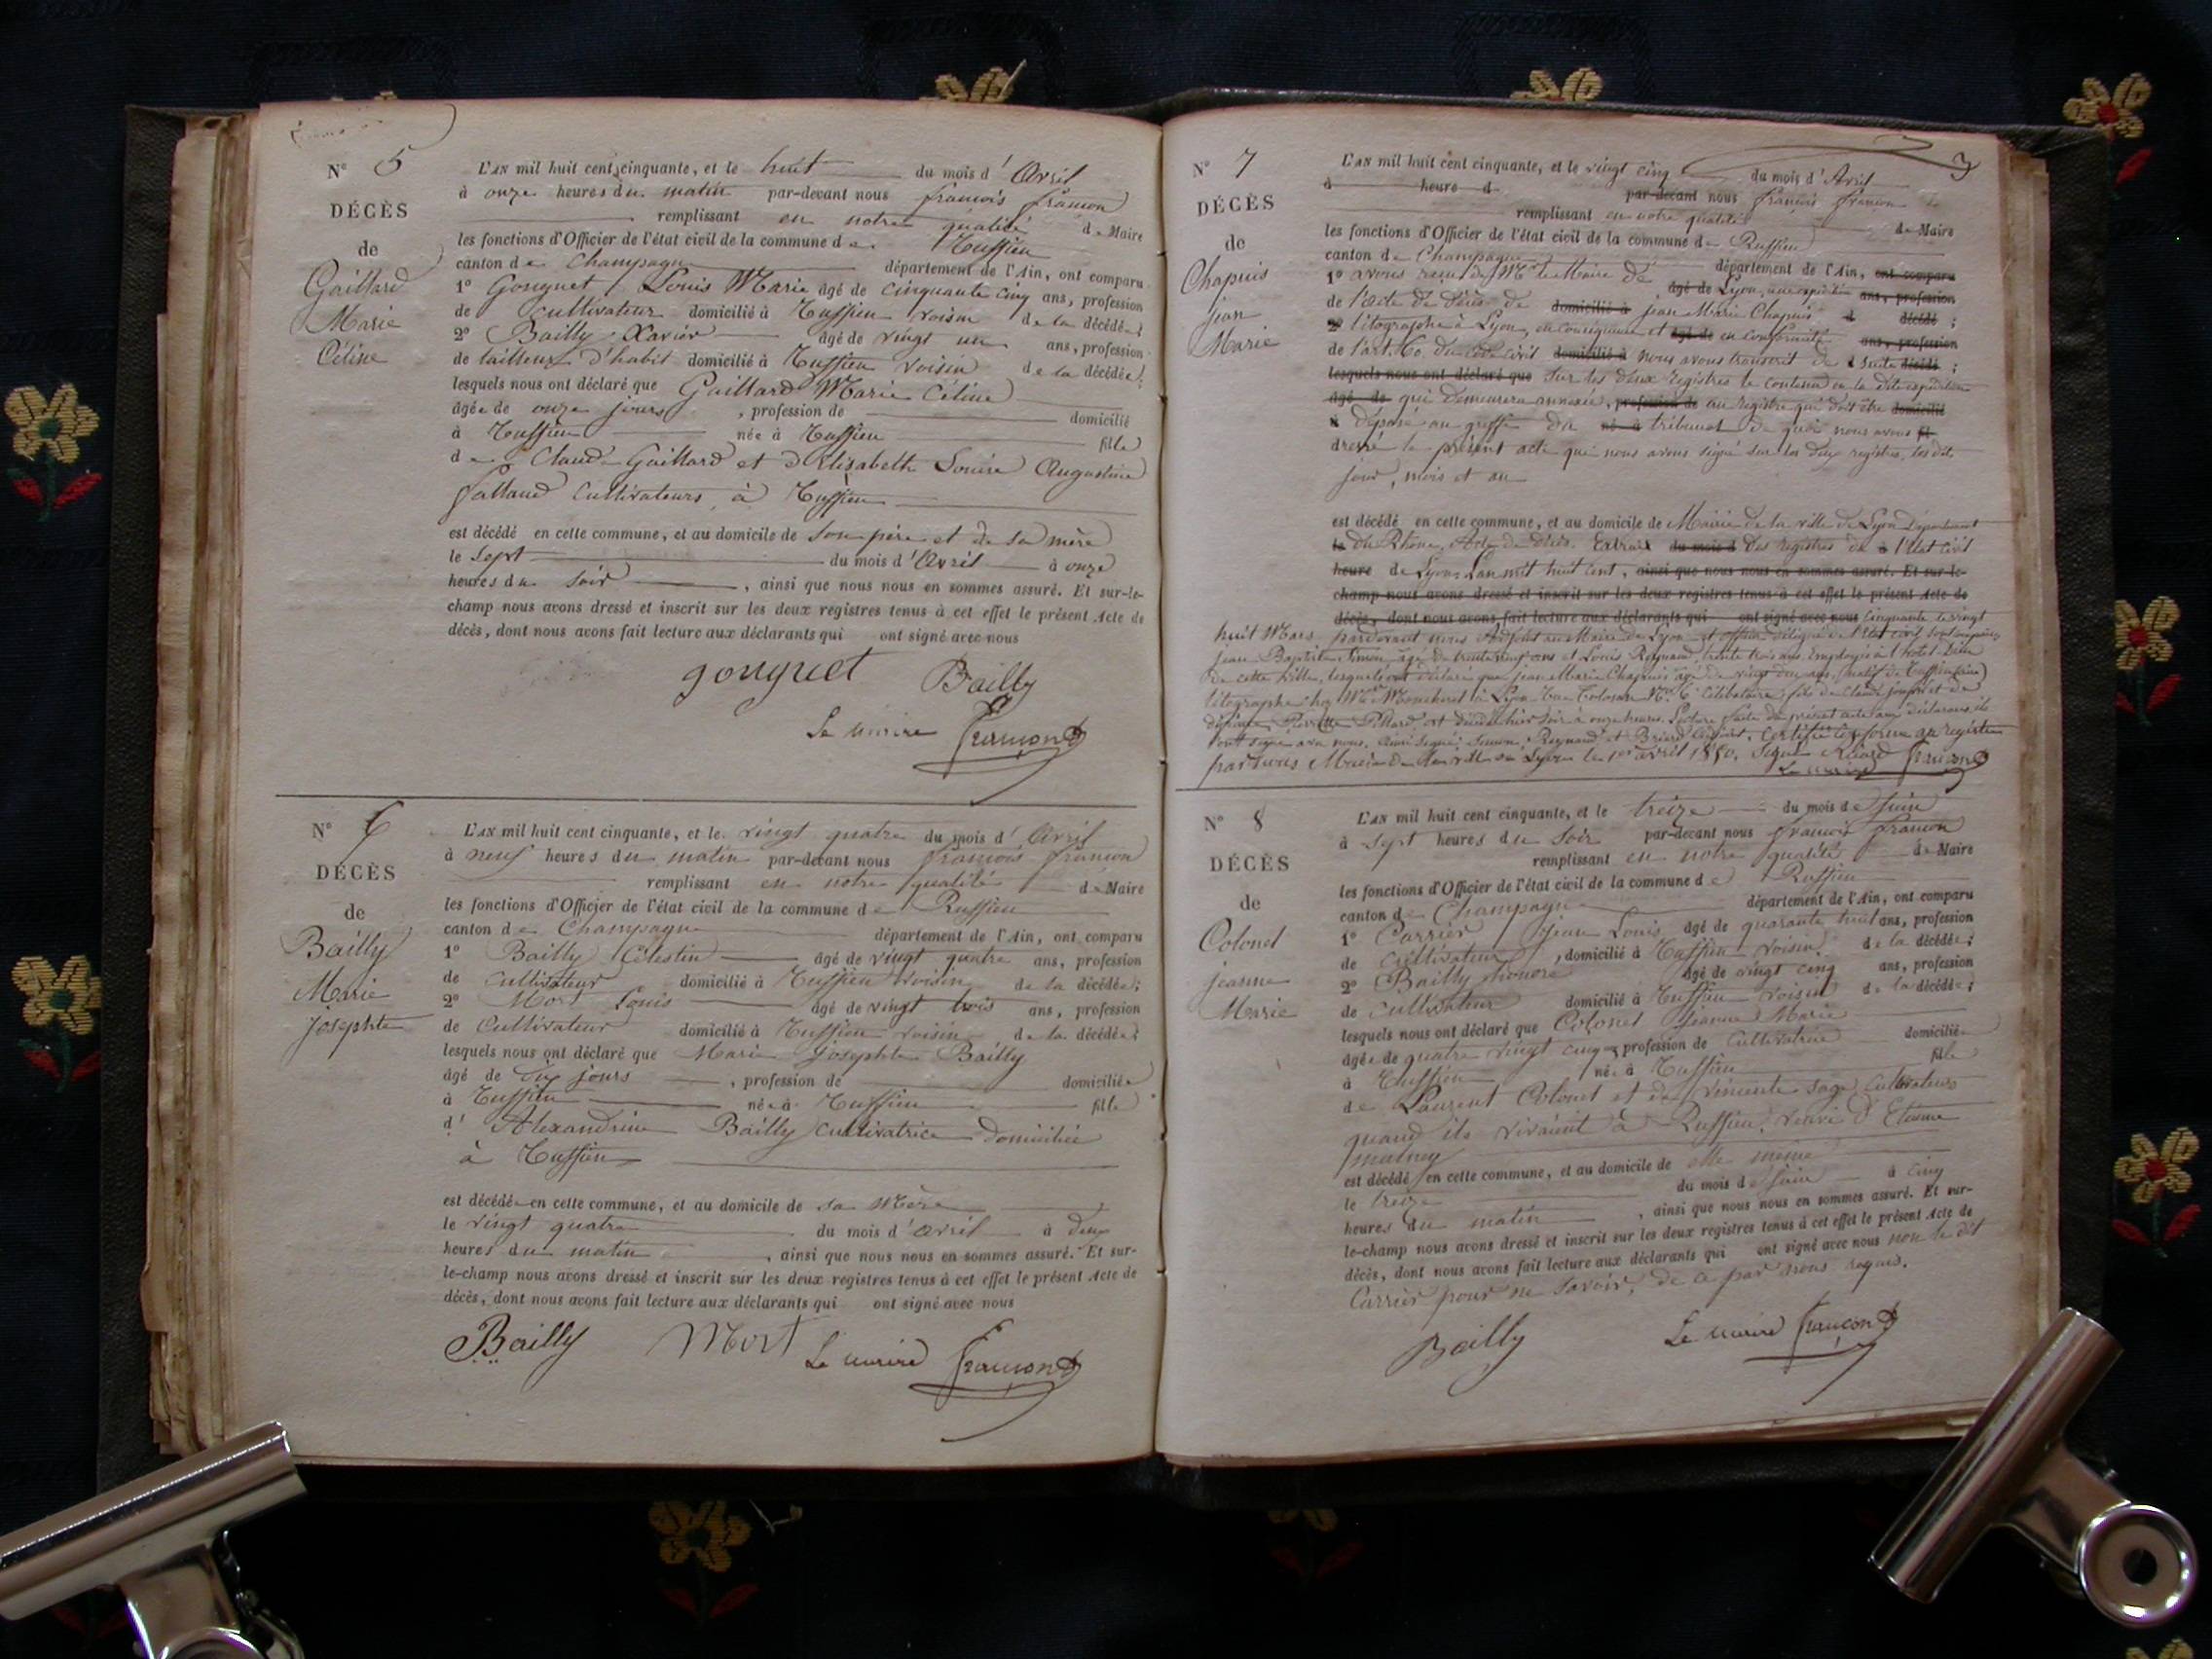 N° 5
DÉCÈS
de
Gaillard
Marie
Céline
L'AN mil huit cent cinquante, et le huit du mois d'Avril
à onze heures du matin par-devant nous françois françon
remplissant en notre qualité de Maire
les fonctions d'Officier de l'état civil de la commune de Ruffieu
canton de Champagne département de l'Ain, ont comparu
1° Gonguet Louis Marie âgé de cinquante cinq ans, profession
de cultivateur domicilié à Ruffieu voisin de la décédée;
2° Bailly Xavier âgé de vingt un ans, profession
de tailleur d'habit domicilié à Ruffieu voisin de la décédée;
lesquels nous ont déclaré que Gaillard Marie Céline
âgée de onze jours, profession de domicilié
à Ruffieu née à Ruffieu fille
de Claude Gaillard et d'Elisabeth Louise Augustine
cultivateurs à Ruffieu
est décédé en cette commune, et au domicile de son père et de sa mère
le sept du mois d'Avril à onze
heures du soir, ainsi que nous nous en sommes assuré. Et sur-le-
champ nous avons dressé et inscrit sur les deux registres tenus à cet effet le présent Acte de
décès, dont nous avons fait lecture aux déclarants qui ont signé avec nous
gonguet Bailly
Le maire françon
N° 6
DÉCÈS
de
Bailly
Marie
Josephte
L'AN mil huit cent cinquante, et le vingt quatre du mois d'Avril
à neuf heures du matin par-devant nous françois françon
remplissant en notre qualité de Maire
les fonctions d'Officier de l'état civil de la commune de Ruffieu
canton de Champagne département de l'Ain, ont comparu
1° Bailly Célestin âgé de vingt quatre ans, profession
de cultivateur domicilié à Ruffieu voisin de la décédée;
2° Mort Louis âgé de vingt trois ans, profession
de cultivateur domicilié à Ruffieu voisin de la décédée;
lesquels nous ont déclaré que Marie Josephte Bailly
âgé de dix jours, profession de domiciliée
à Ruffieu née à Ruffieu fille
d'Alexandrine Bailly cultivatrice domiciliée
à Ruffieu
est décédée en cette commune, et au domicile de sa Mère
le vingt quatre du mois d'avril à deux
heures du matin, ainsi que nous nous en sommes assuré. Et sur-
le-champ nous avons dressé et inscrit sur les deux registres tenus à cet effet le présent Acte de
décès, dont nous avons fait lecture aux déclarants qui ont signé avec nous
Bailly Mort Le maire françon
3
N° 7
DÉCÈS
de
Chapuis
jean
Marie
L'AN mil huit cent cinquante, et le vingt cinq du mois d'Avril
à heure d par-devant nous françois françon
remplissant en notre qualité de Maire
les fonctions d'Officier de l'état civil de la commune de Ruffieu
canton de Champagne département de l'Ain, ont comparu
1° avons reçu de Mr le Maire de âgé de Lyon, une expédition ans, profession
de l'acte de décès de domicilié à jean Marie Chapuis d décédé;
2° litographe à Lyon, en conséquence et âgé de en conformité ans, profession
de l'art. 60 du code civil domicilié à nous avons transcrit de suite décédé;
lesquels nous ont déclaré que sur les deux registres le contenu en la dite expédition
âgé de qui demeurera annexée, profession de au registre qui doit être domicilié
à déposé au greffe du né à tribunal de quoi nous avons
dressé le présent acte que nous avons signé sur les deux registres, les dits
jour, mois et an
est décédé en cette commune, et au domicile de Mairie de la ville de Lyon Département
le du Rhône. Acte de décès. Extrait du mois d des registres de à l'état civil
heure de Lyon. L'an mil huit cent, ainsi que nous nous en sommes assuré. Et sur-le-
champ nous avons dressé et inscrit sur les deux registres tenus à cet effet le présent Acte de
décès, dont nous avons fait lecture aux déclarants qui ont signé avec nous cinquante le vingt
huit Mars, pardevant nous Adjoint au Maire de Lyon et officier délégué de l'état civil, sont comparus
jean Baptiste Simon âgé de trente neuf ans et Louis Reynaud, trente trois ans, Employés à l'hotel Dieu
de cette Ville, lesquels ont déclaré que jean Marie Chapuis âgé de vingt deux ans, natif de Ruffieu (ain)
litographe chez Mr à Lyon Rue Tolosan N° 6 célibataire, fils de Claude joseph et de
défunte Pierrette est décédé hier soir à onze heures. Lecture faite du présent acte aux déclarants, ils
l'ont signé avec nous. Ainsi signé; Simon, Reynaud et adjoint. Certifié conforme au registre
par nous Maire de la ville de Lyon le 1er avril 1850. Signé
Le maire françon
N° 8
DÉCÈS
de
Colonel
jeanne
Marie
L'AN mil huit cent cinquante, et le treize du mois de juin
à sept heures du soir par-devant nous françois françon
remplissant en notre qualité de Maire
les fonctions d'Officier de l'état civil de la commune de Ruffieu
canton de Champagne département de l'Ain, ont comparu
1° Carrier jean Louis âgé de quarante huit ans, profession
de cultivateur, domicilié à Ruffieu voisin de la décédée;
2° Bailly honoré âgé de vingt cinq ans, profession
de cultivateur domicilié à Ruffieu voisin de la décédée;
lesquels nous ont déclaré que Colonel jeanne Marie
âgée de quatre vingt cinq, profession de cultivatrice domiciliée
à Ruffieu née à Ruffieu fille
de Laurent Colonel et de Vincente sage cultivateurs
quand ils vivaient à Ruffieu, veuve d'Etienne
est décédé en cette commune, et au domicile de elle même
le treize du mois de juin à cinq
heures du matin, ainsi que nous nous en sommes assuré. Et sur-
le-champ nous avons dressé et inscrit sur les deux registres tenus à cet effet le présent Acte de
décès, dont nous avons fait lecture aux déclarants qui ont signé avec nous non le dit
Carrier pour ne savoir, de ce par nous requis.
Bailly Le maire françon